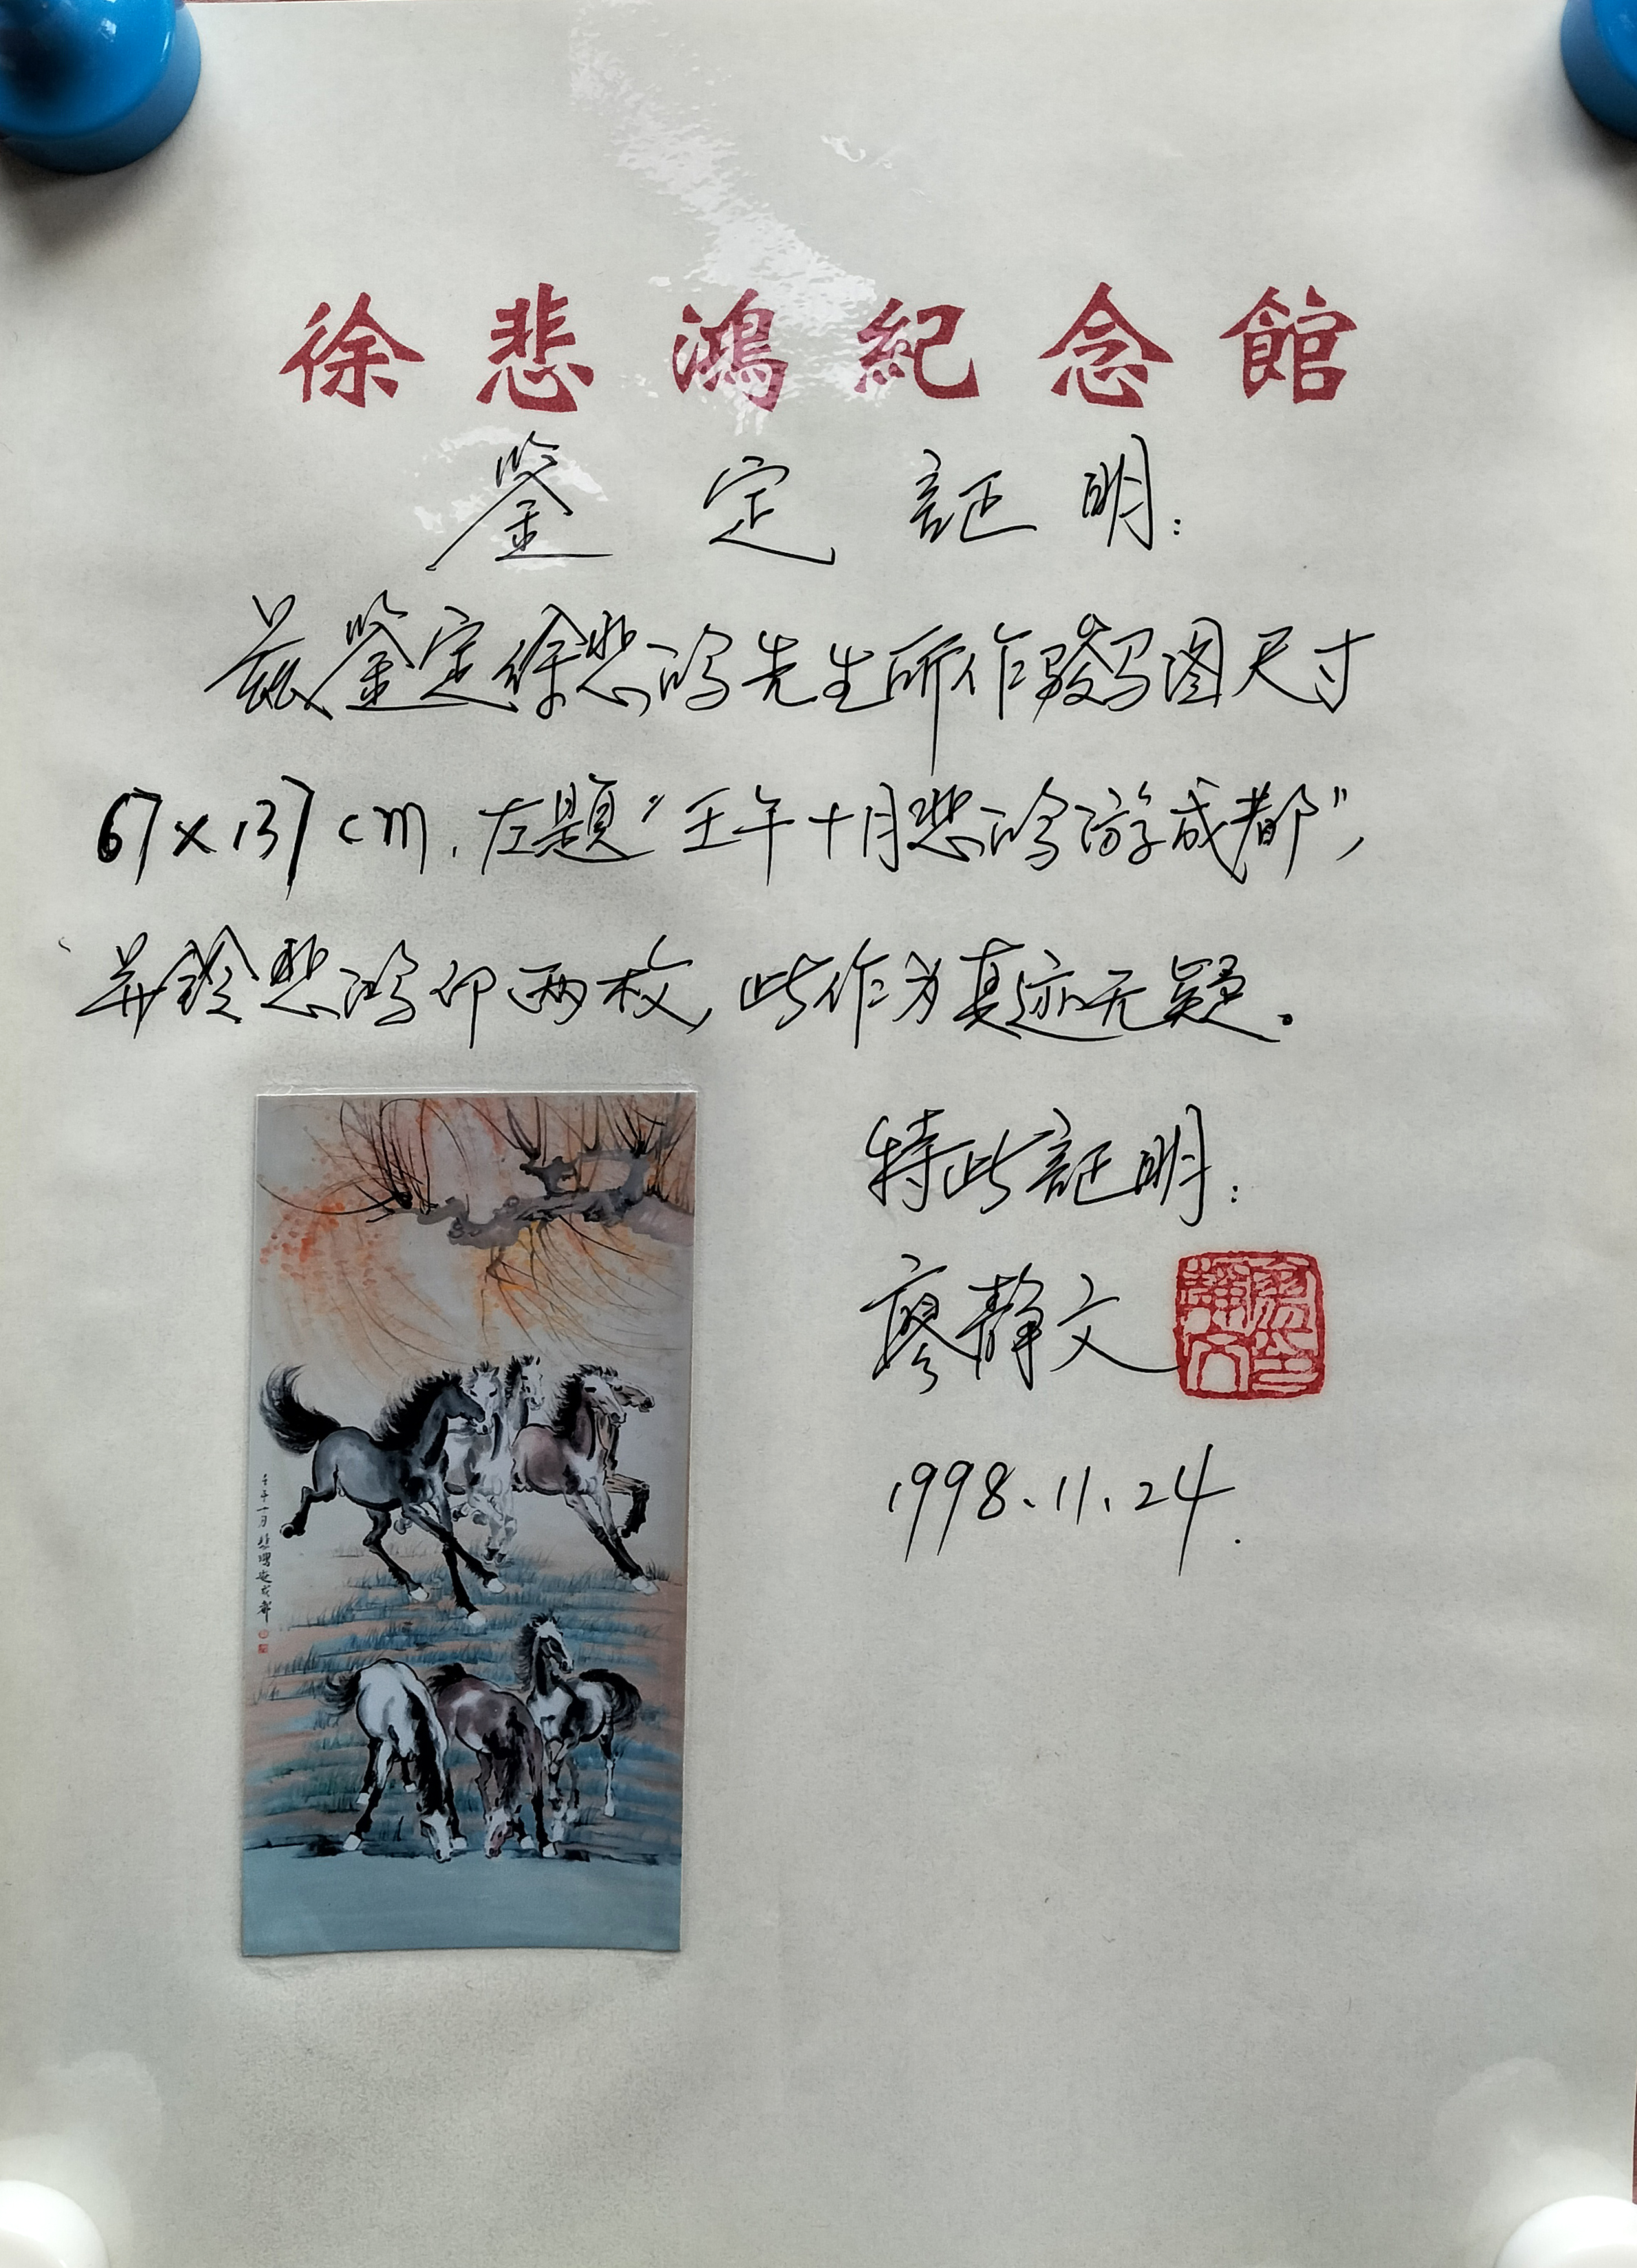 徐悲鴻紀念館
鉴定証明：
兹鉴定徐悲鸿先生所作骏马图尺寸
67x137cm.左题“壬午十月悲鸿游成都”，
并钤悲鸿印两枚,此作为真迹无疑。
特此証明：
廖静文
1998.11.24.
壬午十月悲鸿游成都